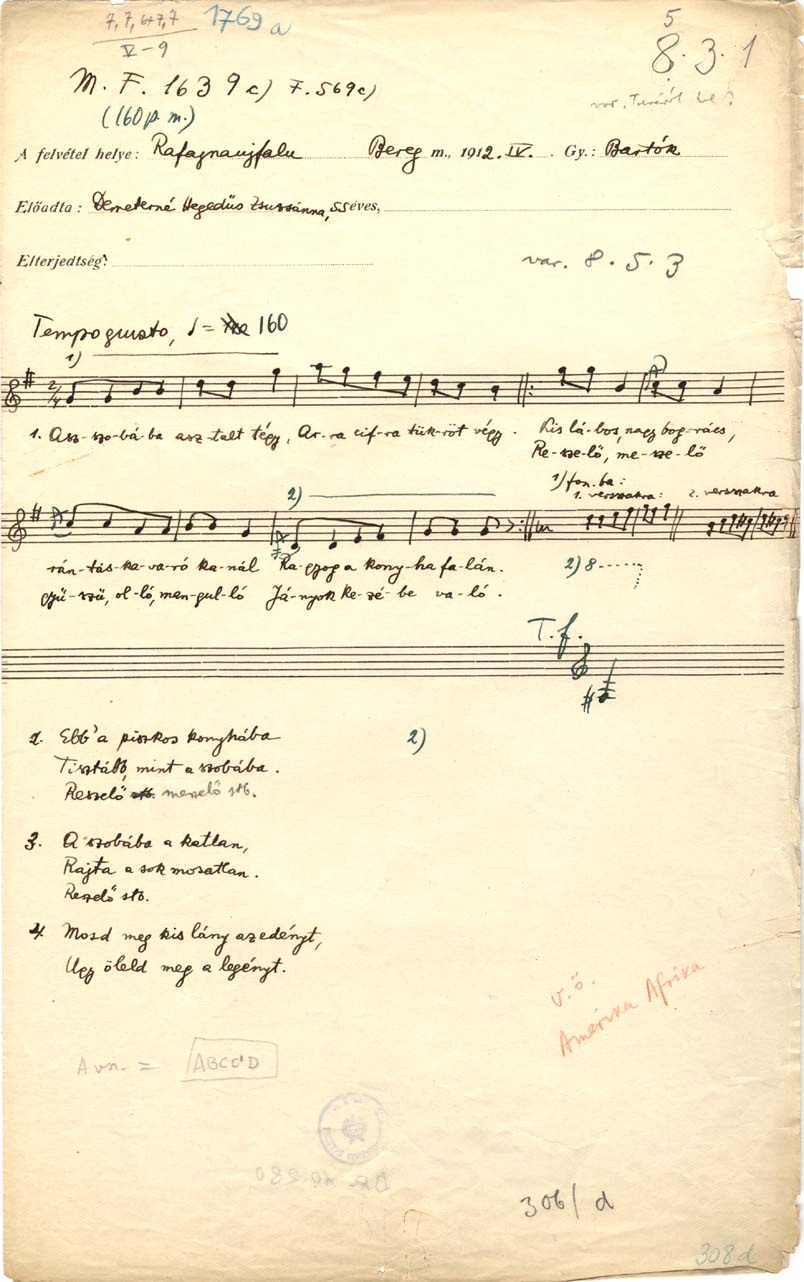 7, 7, 6+7, 7
V-9
1769 a
5
8. 3. 1
M. F. 1639 c) F. 569 c)
(160 p. m.)
A felvétel helye: Rafaznaujfalu Bereg m., 1912. IV. Gy.: Bartók
Előadta: Demeterné Hegedűs Zsuzsánna, 55 éves,
Elterjedtség:
var. 8. 5. 3
Tempo giusto, = 160
1)
1. Asz-szo-bá-ba asz-talt tégy, Ar-ra cif-ra tük-röt végy. Kis lá-bos, nagy bog-rács,
Re-sze-lő, me-sze-lő
1) fon.ba:
1. versszakra: 2. versszakra
2)
rán-tás-ka-va-ró ka-nál Ra-gyog a kony-ha fa-lán.
2) 8
gyű-szű, ol-ló, man-gul-ló Já-nyok ke-zé-be va-ló.
T. f.
2. Ebb' a piszkos konyhába
2)
Tisztább, mint a szobába.
Reszelő meszelő stb.
3. A szobába a katlan,
Rajta a sok mosatlan.
Reszelő stb.
4. Mosd meg kis lány az edényt,
Ugy öleld meg a legényt.
v. ö.
Amérika Afrika
A vsz. = ABCC'D
306/d
308 d